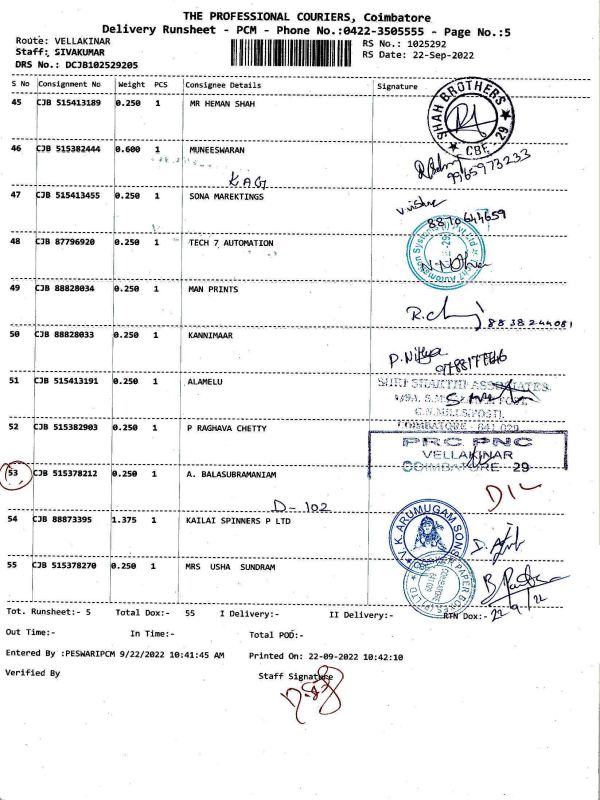 THE PROFESSIONAL COURIERS, Coimbatore
Delivery Runsheet - PCM - Phone No.:0422-3505555 - Page No.:5
Route: VELLAKINAR
RS No.: 1025292
Staff: SIVAKUMAR
RS Date: 22-Sep-2022
DRS No.: DCJB102529205
S No Consignment No Weight PCS Consignee Details Signature
45 CJB 515413189 0.250 1 MR HEMAN SHAH
SHAH BROTHERS
CBE - 29
46 CJB 515382444 0.600 1 MUNEESWARAN
9965973233
KAGI
47 CJB 515413455 0.250 1 SONA MAREKTINGS
8870644659
48 CJB 87796920 0.250 1 TECH 7 AUTOMATION
49 CJB 88828034 0.250 1 MAN PRINTS
8838244081
50 CJB 88828033 0.250 1 KANNIMAAR
P. Nithya
51 CJB 515413191 0.250 1 ALAMELU
SHRI SHAKTHI ASSOCIATES
COIMBATORE - 641 029
52 CJB 515382903 0.250 1 P RAGHAVA CHETTY
PRC PNC
VELLAKINAR
COIMBATORE - 29
53 CJB 515378212 0.250 1 A. BALASUBRAMANIAM
D-102
D/L
54 CJB 88873395 1.375 1 KAILAI SPINNERS P LTD
V. K. ARUMUGAM SONS
55 CJB 515378270 0.250 1 MRS USHA SUNDRAM
22/9/22
Tot. Runsheet:- 5 Total Dox:- 55 I Delivery:- II Delivery:- RTN Dox:-
Out Time:- In Time:- Total POD:-
Entered By :PESWARIPCM 9/22/2022 10:41:45 AM Printed On: 22-09-2022 10:42:10
Verified By Staff Signature